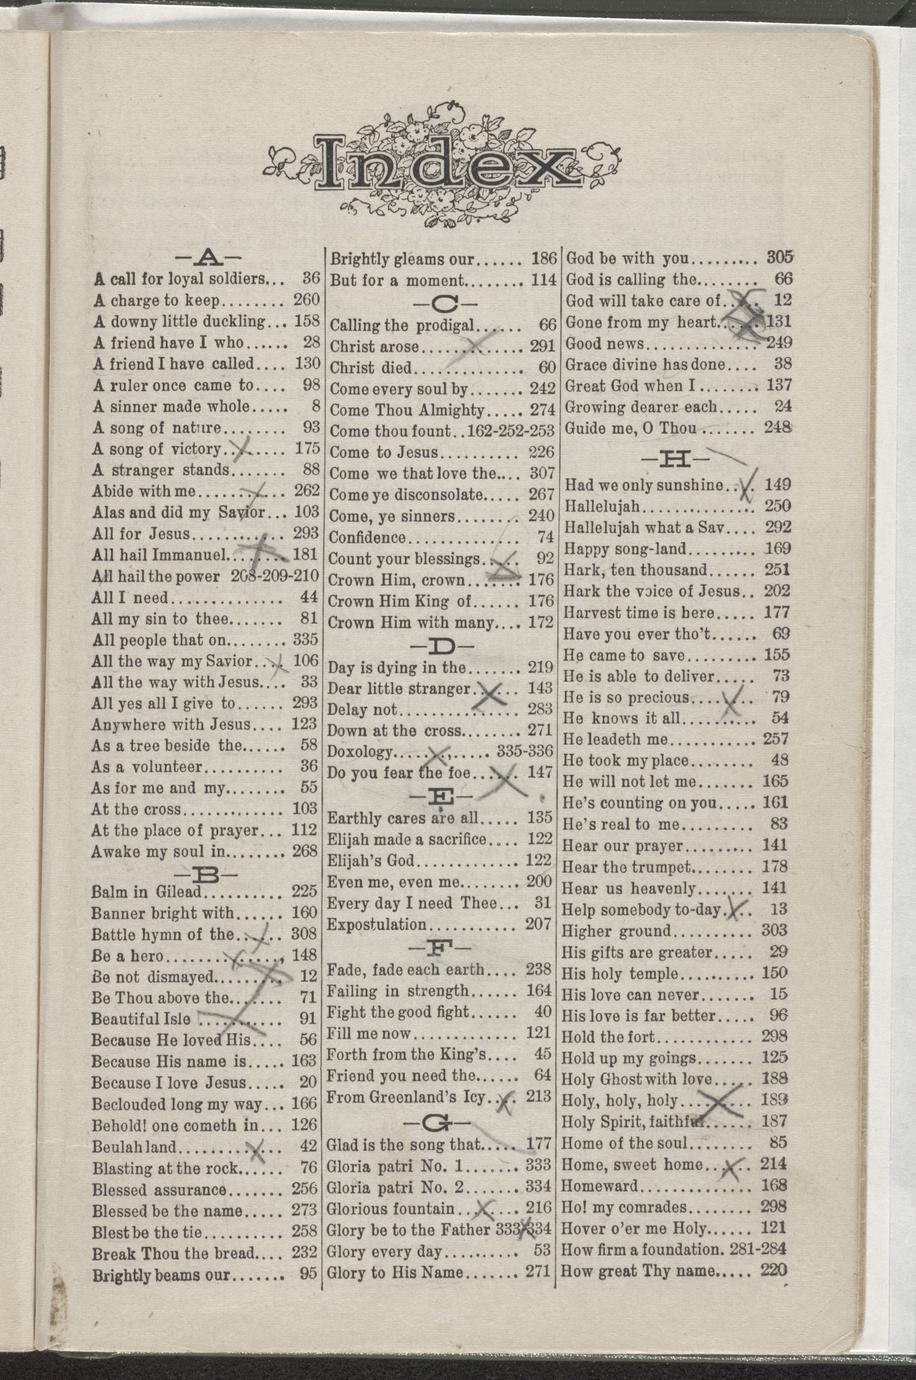 Index
—A—
A call for loyal soldiers... 36
A charge to keep........ 260
A downy little duckling... 158
A friend have I who...... 28
A friend I have called.... 130
A ruler once came to.... 98
A sinner made whole..... 8
A song of nature........ 93
A song of victory....... 175
A stranger stands....... 88
Abide with me.......... 262
Alas and did my Savior... 103
All for Jesus............ 293
All hail Immanuel....... 181
All hail the power 208-209-210
All I need............. 44
All my sin to thee....... 81
All people that on....... 335
All the way my Savior.... 106
All the way with Jesus.... 33
All yes all I give to...... 293
Anywhere with Jesus.... 123
As a tree beside the...... 58
As a volunteer.......... 36
As for me and my........ 55
At the cross............ 103
At the place of prayer... 112
Awake my soul in........ 268
—B—
Balm in Gilead.......... 225
Banner bright with...... 160
Battle hymn of the...... 308
Be a hero............. 148
Be not dismayed........ 12
Be Thou above the....... 71
Beautiful Isle .......... 91
Because He loved His.... 56
Because His name is..... 163
Because I love Jesus..... 20
Beclouded long my way... 166
Behold! one cometh in... 126
Beulah land............ 42
Blasting at the rock...... 76
Blessed assurance....... 256
Blessed be the name..... 273
Blest be the tie.......... 258
Break Thou the bread.... 232
Brightly beams our....... 95
Brightly gleams our...... 186
But for a moment........ 114
—C—
Calling the prodigal...... 66
Christ arose............ 291
Christ died............. 60
Come every soul by...... 242
Come Thou Almighty..... 274
Come thou fount..162-252-253
Come to Jesus.......... 226
Come we that love the.... 307
Come ye disconsolate..... 267
Come, ye sinners........ 240
Confidence............. 74
Count your blessings..... 92
Crown Him, crown....... 176
Crown Him King of...... 176
Crown Him with many.... 172
—D—
Day is dying in the....... 219
Dear little stranger...... 143
Delay not.............. 283
Down at the cross........ 271
Doxology............ 335-336
Do you fear the foe...... 147
—E—
Earthly cares are all..... 135
Elijah made a sacrifice.... 122
Elijah's God............ 122
Even me, even me........ 200
Every day I need Thee... 31
Expostulation.......... 207
—F—
Fade, fade each earth.... 238
Failing in strength...... 164
Fight the good fight...... 40
Fill me now............ 121
Forth from the King's.... 45
Friend you need the...... 64
From Greenland's Icy.... 213
—G—
Glad is the song that..... 177
Gloria patri No. 1....... 333
Gloria patri No. 2....... 334
Glorious fountain....... 216
Glory be to the Father 333-334
Glory every day......... 53
Glory to His Name....... 271
God be with you......... 305
God is calling the........ 66
God will take care of..... 12
Gone from my heart...... 131
Good news............. 249
Grace divine has done.... 38
Great God when I........ 137
Growing dearer each..... 24
Guide me, O Thou ....... 248
—H—
Had we only sunshine.... 149
Hallelujah.............. 250
Hallelujah what a Sav.... 292
Happy song-land......... 169
Hark, ten thousand...... 251
Hark the voice of Jesus.. 202
Harvest time is here..... 177
Have you ever tho't...... 69
He came to save......... 155
He is able to deliver..... 73
He is so precious....... 79
He knows it all......... 54
He leadeth me........... 257
He took my place........ 48
He will not let me....... 165
He's counting on you..... 161
He's real to me......... 83
Hear our prayer......... 141
Hear the trumpet........ 178
Hear us heavenly....... 141
Help somebody to-day.... 13
Higher ground.......... 303
His gifts are greater..... 29
His holy temple.......... 150
His love can never....... 15
His love is far better..... 96
Hold the fort............ 298
Hold up my goings....... 125
Holy Ghost with love..... 188
Holy, holy, holy......... 189
Holy Spirit, faithful...... 187
Home of the soul........ 85
Home, sweet home...... 214
Homeward............. 168
Ho! my comrades........ 298
Hover o'er me Holy...... 121
How firm a foundation. 281-284
How great Thy name..... 220